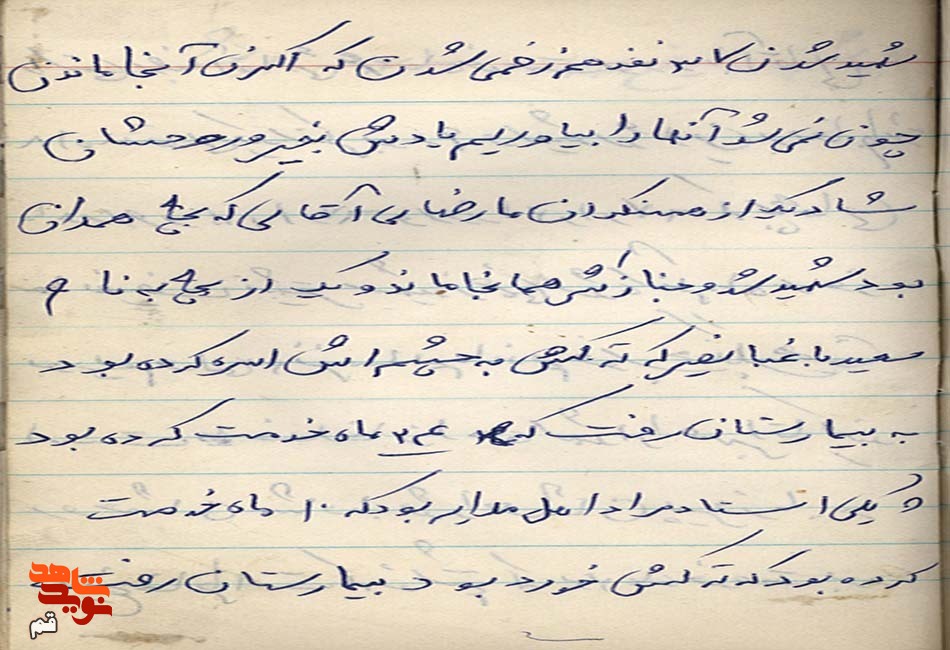 شهید شدن ۳۷ نفر هم زخمی شدن که اکثرن آنجا ماندن
چون نمی شد آنها را بیاوریم یادش بخیر و روحشان
شاد دیگر از همسنگران ما رضایی آقایی که بچه همدان
بود شهید شد و جنازش همانجا ماند و یک از بچه به نام
سعید با غبا نصیر که ترکش به چشم اش اس کرده بود
به بیمارستان رفت که ۲۳ ماه خدمت کرده بود
و یکی استاد مراد اهل ملایر بود که ۱۰ ماه خدمت
کرده بود که ترکش خورد بود بیمارستان رفت
نوید شاهد
قم